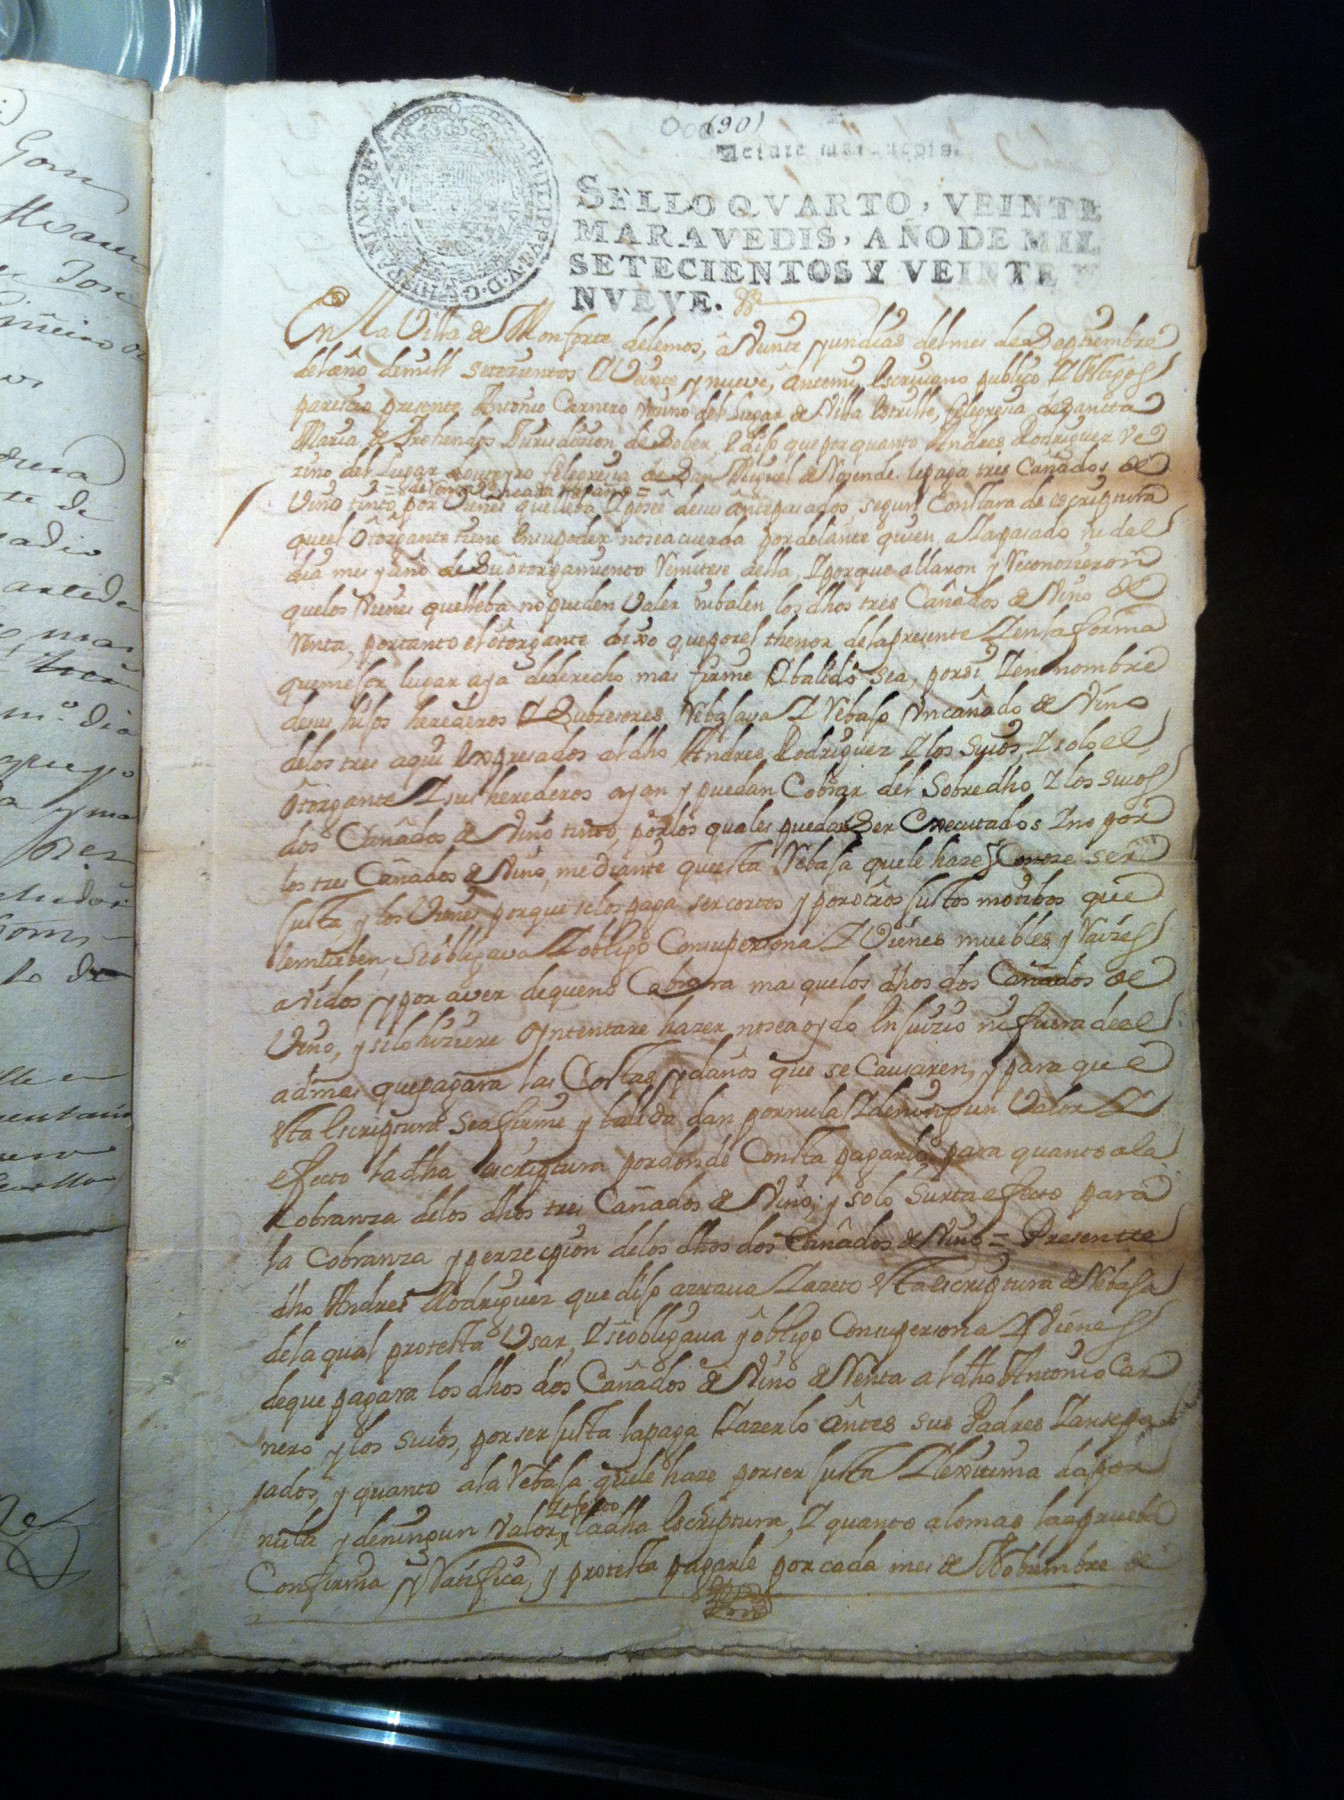 (90)
SELLO QVARTO, VEINTE
MARAVEDIS, AÑO DE MIL
SETECIENTOS Y VEINTE Y
NVEVE.
En la Villa de Monforte delemos, â Veinte y un dias del mes de Septiembre
del año demill setecientos y Veinte y nueve, ântemi escrivano publico y testigos
parescio presente Antonio Carnero Vecino del Lugar de felegresia de Santta
Maria de Jurisdizion de Dober, y dijo que por quanto Andres Rodriguez Ve
zino del Lugar felegresia de San Miguel de Rosende le paga tres Cañados de
Vino tinto por Vienes que lleba y poseê de sus ântepasados segun Constara de escriptura
que el ôtorgante tiene en su poder no se acuerda por delante quien a pasado ni del
dia mes y año de su ôtorgamiento Remitese della, y porque allaron y Reconozieron
que los Vienes que lleba no pueden Valer ni balen los dhos tres Cañados de Vino de
Renta, por tanto el ôtorgante dixo que por el thenor de la presente y en la forma
que mejor lugar aya de derecho mas firme y balido sea, por si y en nombre
de sus hijos herederos y subzesores, Rebajava y Rebajo un cañado de Vino
de los tres aqui expresados al dho Andres Rodriguez y los suios, y solo el
ôtorgante y sus herederos ayan y puedan Cobrar del sobredho y los suios
dos Cañados de Vino tinto, por los quales puedan ser executados y no por
los tres Cañados de Vino, mediante questa Rebaja que le haze Conoze ser
justa y los Vienes porque se los paga ser cortos y por ôtros justos motibos que
le mueben, se ôbligava y obligo Con su persona y Vienes muebles y Raizes
avidos y por aver de que no Cobrara mas que los dhos dos Cañados de
Vino, y si lo hiziere o yntentare hazer no sea oydo en juizio ni fuera de el
admas que pagara las Costas y daños que se Causaren, y para que
esta escriptura sea firme y balida dan por nula y de ningun Valor y
efecto la dha escriptura por donde Consta pagarlo para quanto a la
Cobranza de los dhos tres Cañados de Vino, y solo surta efecto para
la Cobranza y perzepcion de los dhos dos Cañados de Vino = Presentte
dho Andres Rodriguez que dijo azetava y azeto esta escriptura de Rebaja
de la qual protesta Usar, y se ôbligava y ôbligo Con su persona y Vienes
de que pagara los dhos dos Cañados de Vino de Renta al dho Antonio Car
nero y los suios, por ser justa la paga y azerlo ântes sus Padres y antepa
sados, y quanto a la Rebaja que le haze por ser justa y lexitima da por
nula y de ningun Valor y efecto la dha escriptura, y quanto a lo mas la aprueba
Confirma y Ratifica, y protesta pagarle por cada mes de Nobiembre de